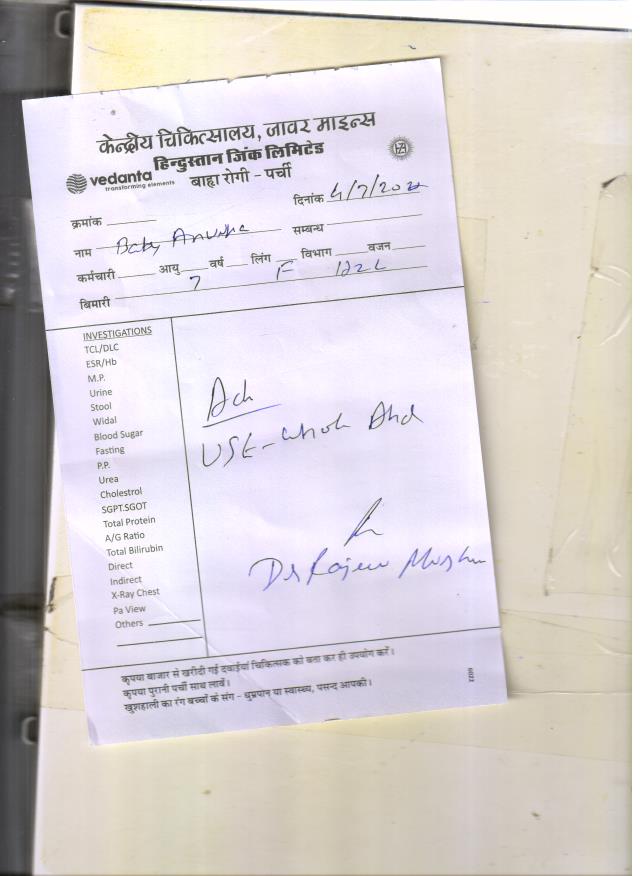 केन्द्रीय चिकित्सालय, जावर माइन्स
हिन्दुस्तान जिंक लिमिटेड
vedanta
transforming elements
बाह्य रोगी - पर्ची
दिनांक 4/7/20
क्रमांक
नाम Baby सम्बन्ध
कर्मचारी आयु 7 वर्ष लिंग F विभाग HZL वजन
बिमारी
INVESTIGATIONS
TCL/DLC
ESR/Hb
M.P.
Urine
Stool
Widal
Blood Sugar
Fasting
P.P.
Urea
Cholestrol
SGPT.SGOT
Total Protein
A/G Ratio
Total Bilirubin
Direct
Indirect
X-Ray Chest
Pa View
Others
Adv
USG - whole Abd
Dr Rajeev
कृपया बाजार से खरीदी गई दवाईयां चिकित्सक को बता कर ही उपयोग करें।
कृपया पुरानी पर्ची साथ लावें।
खुशहाली का रंग बच्चों के संग - धुम्रपान या स्वास्थ्य, पसन्द आपकी।